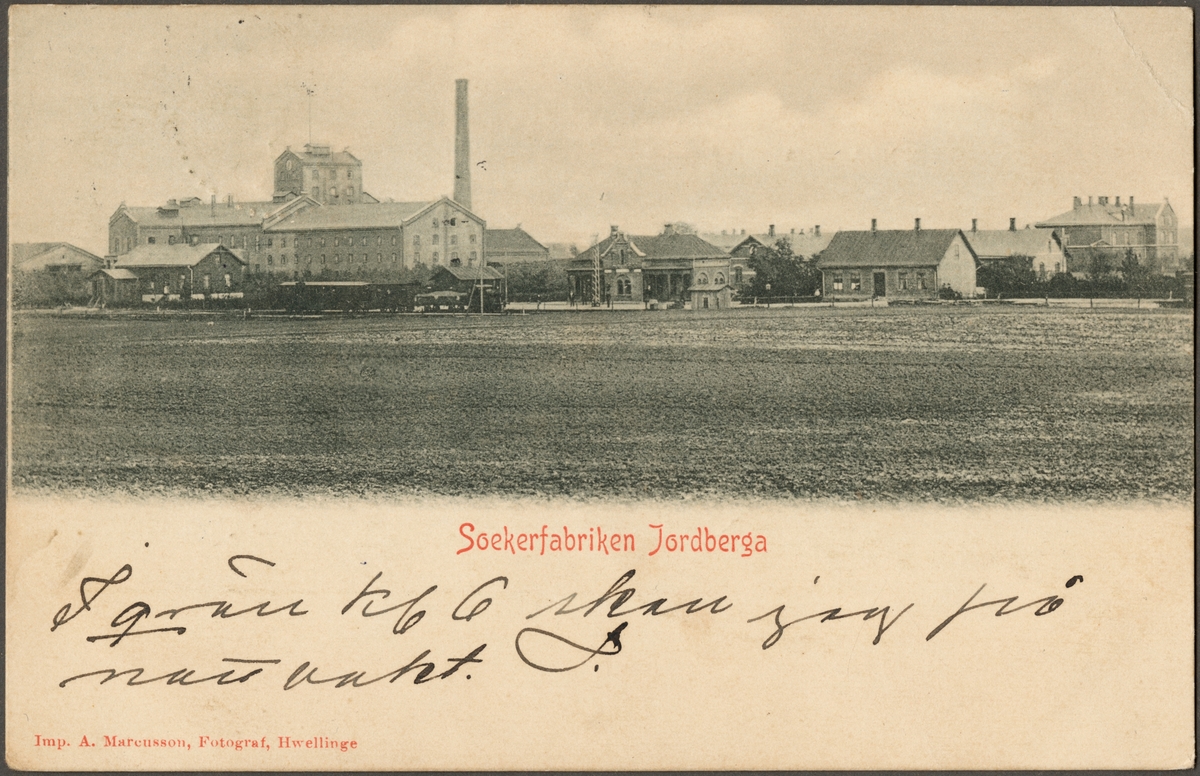 Sockerfabriken Jordberga
I qväll kl 6 skall jag på
nattvakt. S.
Imp. A. Marcusson, Fotograf, Hwellinge